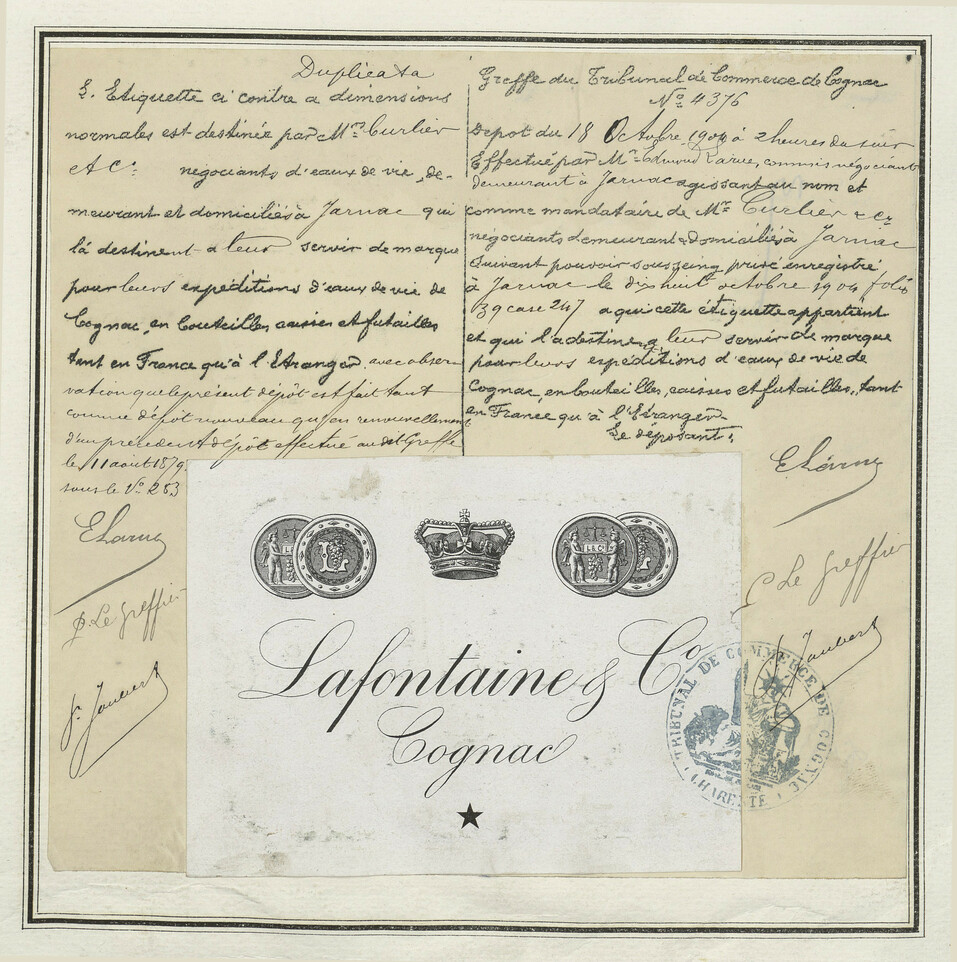 Duplicata
L'Etiquette ci contre a dimensions
normales est destinée par Mrs Curlier
& Cie négociants d'eaux de vie, de-
meurant et domiciliés à Jarnac qui
la destinent a leur servir de marque
pour leurs expéditions d'eaux de vie de
Cognac, en bouteilles, caisses et futailles
tant en France qu'à l'Etranger, avec obser-
vation que le présent dépôt est fait tant
comme dépôt nouveau qu'en renouvellement
d'un précédent dépôt effectué au dit Greffe
le 11 août 1879
sous le No 283
E. Larue
P. Le Greffier
Jaubert
Greffe du Tribunal de Commerce de Cognac
No 4376
Depot du 18 Octobre 1904 à 2 heures du soir
Effectué par Mr Edmond Larue, commis négociant
demeurant à Jarnac agissant au nom et
comme mandataire de Mrs Curlier & Cie
négociants demeurant & domiciliés à Jarnac
Suivant pouvoir sousseing privé enregistré
à Jarnac le dix huit octobre 1904, folio
39 case 247 a qui cette étiquette appartient
et qui l'a destine a leur servir de marque
pour leurs expéditions d'eaux de vie de
Cognac, en bouteilles, caisses et futailles, tant
en France qu'à l'Etranger
Le déposant:
E. Larue
P Le Greffier
Jaubert
L & Co
Lafontaine & Co
Cognac
TRIBUNAL DE COMMERCE DE COGNAC
CHARENTE